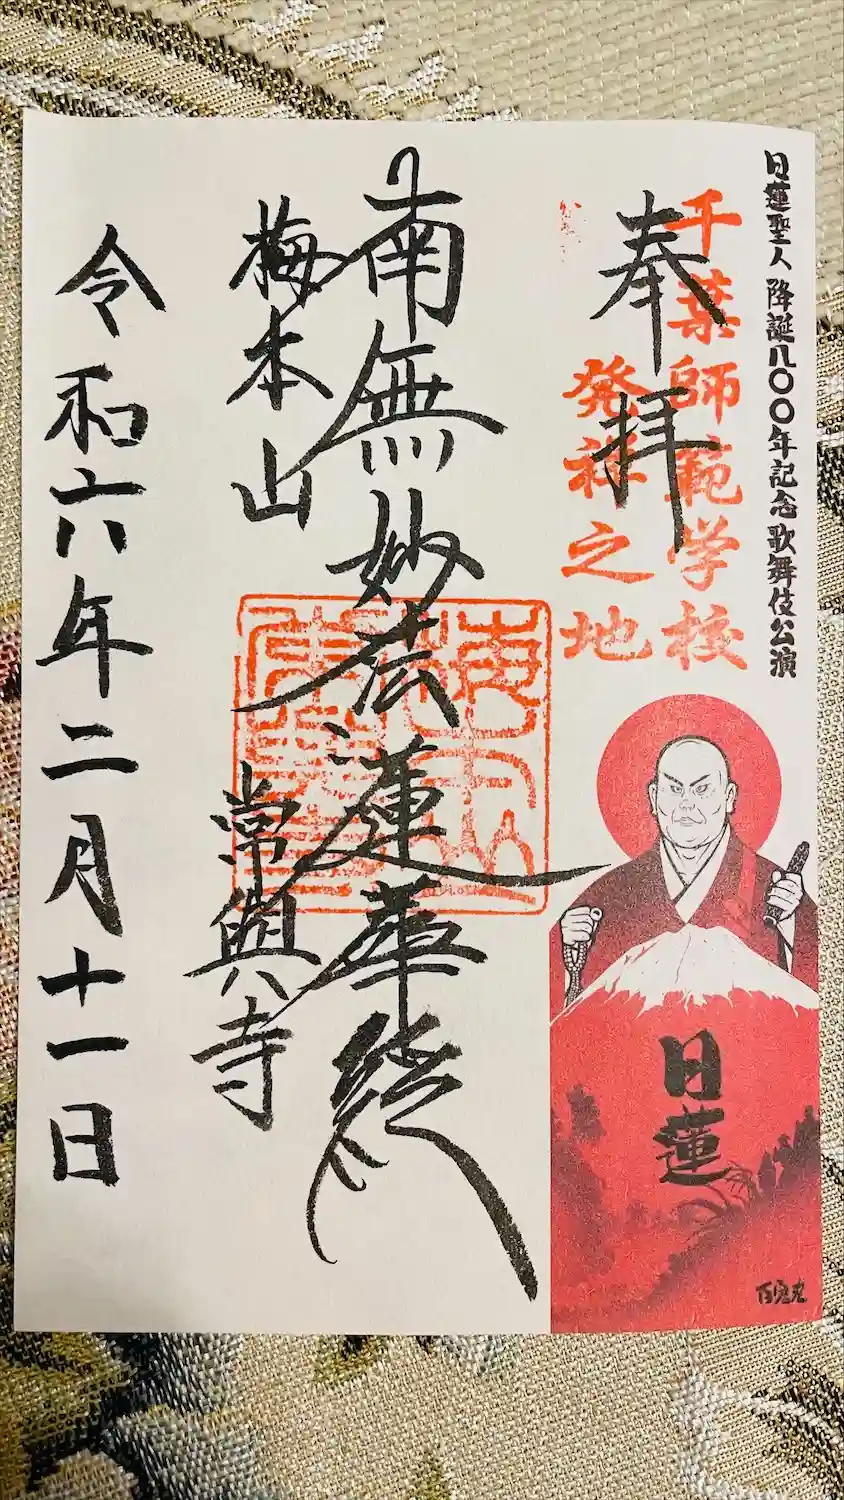 日蓮聖人 降誕八〇〇年記念 歌舞伎公演
千葉師範学校
発祥之地
奉拝
日蓮
南無妙法蓮華経
梅本山
常興寺
令和六年二月十一日